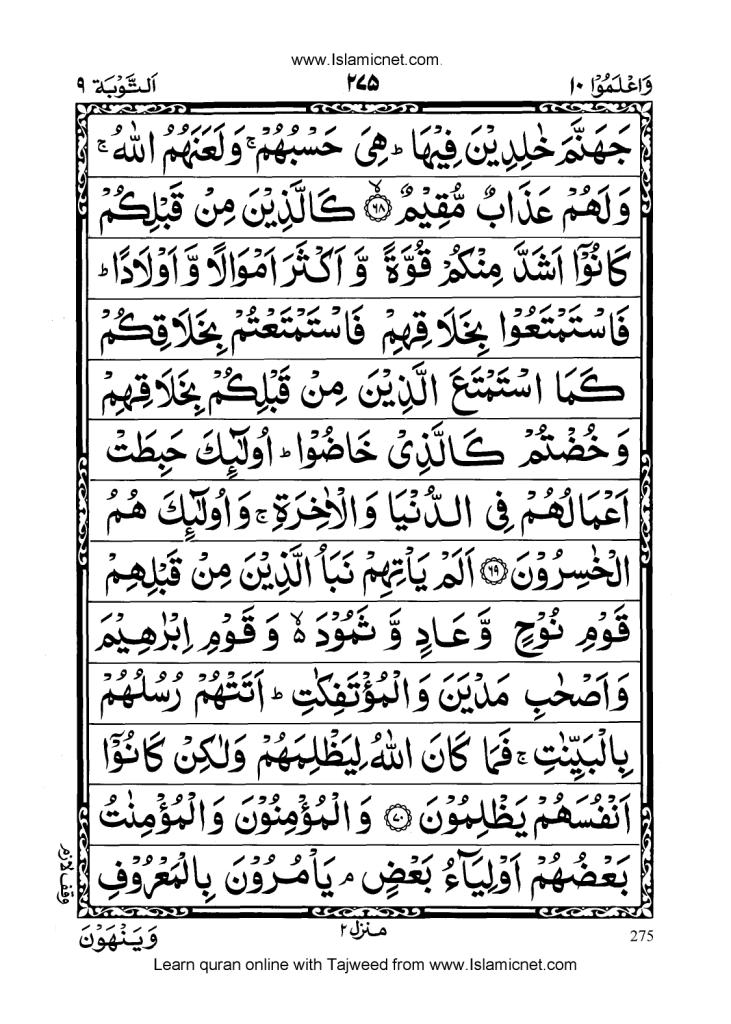 www.Islamicnet.com.
وَاعْلَمُوْۤا ۱۰ ۲۷۵ اَلتَّوْبَة ۹
جَهَنَّمَ خٰلِدِيْنَ فِيْهَا ؕ هِيَ حَسْبُهُمْ ۚ وَلَعَنَهُمُ اللّٰهُ ۚ
وَلَهُمْ عَذَابٌ مُّقِيْمٌ ۙ﴿۶۸﴾ كَالَّذِيْنَ مِنْ قَبْلِكُمْ
كَانُوْۤا اَشَدَّ مِنْكُمْ قُوَّةً وَّاَكْثَرَ اَمْوَالًا وَّاَوْلَادًا ؕ
فَاسْتَمْتَعُوْا بِخَلَاقِهِمْ فَاسْتَمْتَعْتُمْ بِخَلَاقِكُمْ
كَمَا اسْتَمْتَعَ الَّذِيْنَ مِنْ قَبْلِكُمْ بِخَلَاقِهِمْ
وَخُضْتُمْ كَالَّذِيْ خَاضُوْا ؕ اُولٰٓئِكَ حَبِطَتْ
اَعْمَالُهُمْ فِي الدُّنْيَا وَالْاٰخِرَةِ ۚ وَاُولٰٓئِكَ هُمُ
الْخٰسِرُوْنَ ﴿۶۹﴾ اَلَمْ يَاْتِهِمْ نَبَاُ الَّذِيْنَ مِنْ قَبْلِهِمْ
قَوْمِ نُوْحٍ وَّعَادٍ وَّثَمُوْدَ ۙ وَقَوْمِ اِبْرٰهِيْمَ
وَاَصْحٰبِ مَدْيَنَ وَالْمُؤْتَفِكٰتِ ؕ اَتَتْهُمْ رُسُلُهُمْ
بِالْبَيِّنٰتِ ۚ فَمَا كَانَ اللّٰهُ لِيَظْلِمَهُمْ وَلٰكِنْ كَانُوْۤا
اَنْفُسَهُمْ يَظْلِمُوْنَ ﴿۷۰﴾ وَالْمُؤْمِنُوْنَ وَالْمُؤْمِنٰتُ
بَعْضُهُمْ اَوْلِيَآءُ بَعْضٍ ۘ يَاْمُرُوْنَ بِالْمَعْرُوْفِ
وقف لازم
منزل ۲
وَيَنْهَوْنَ
275
Learn quran online with Tajweed from www.Islamicnet.com